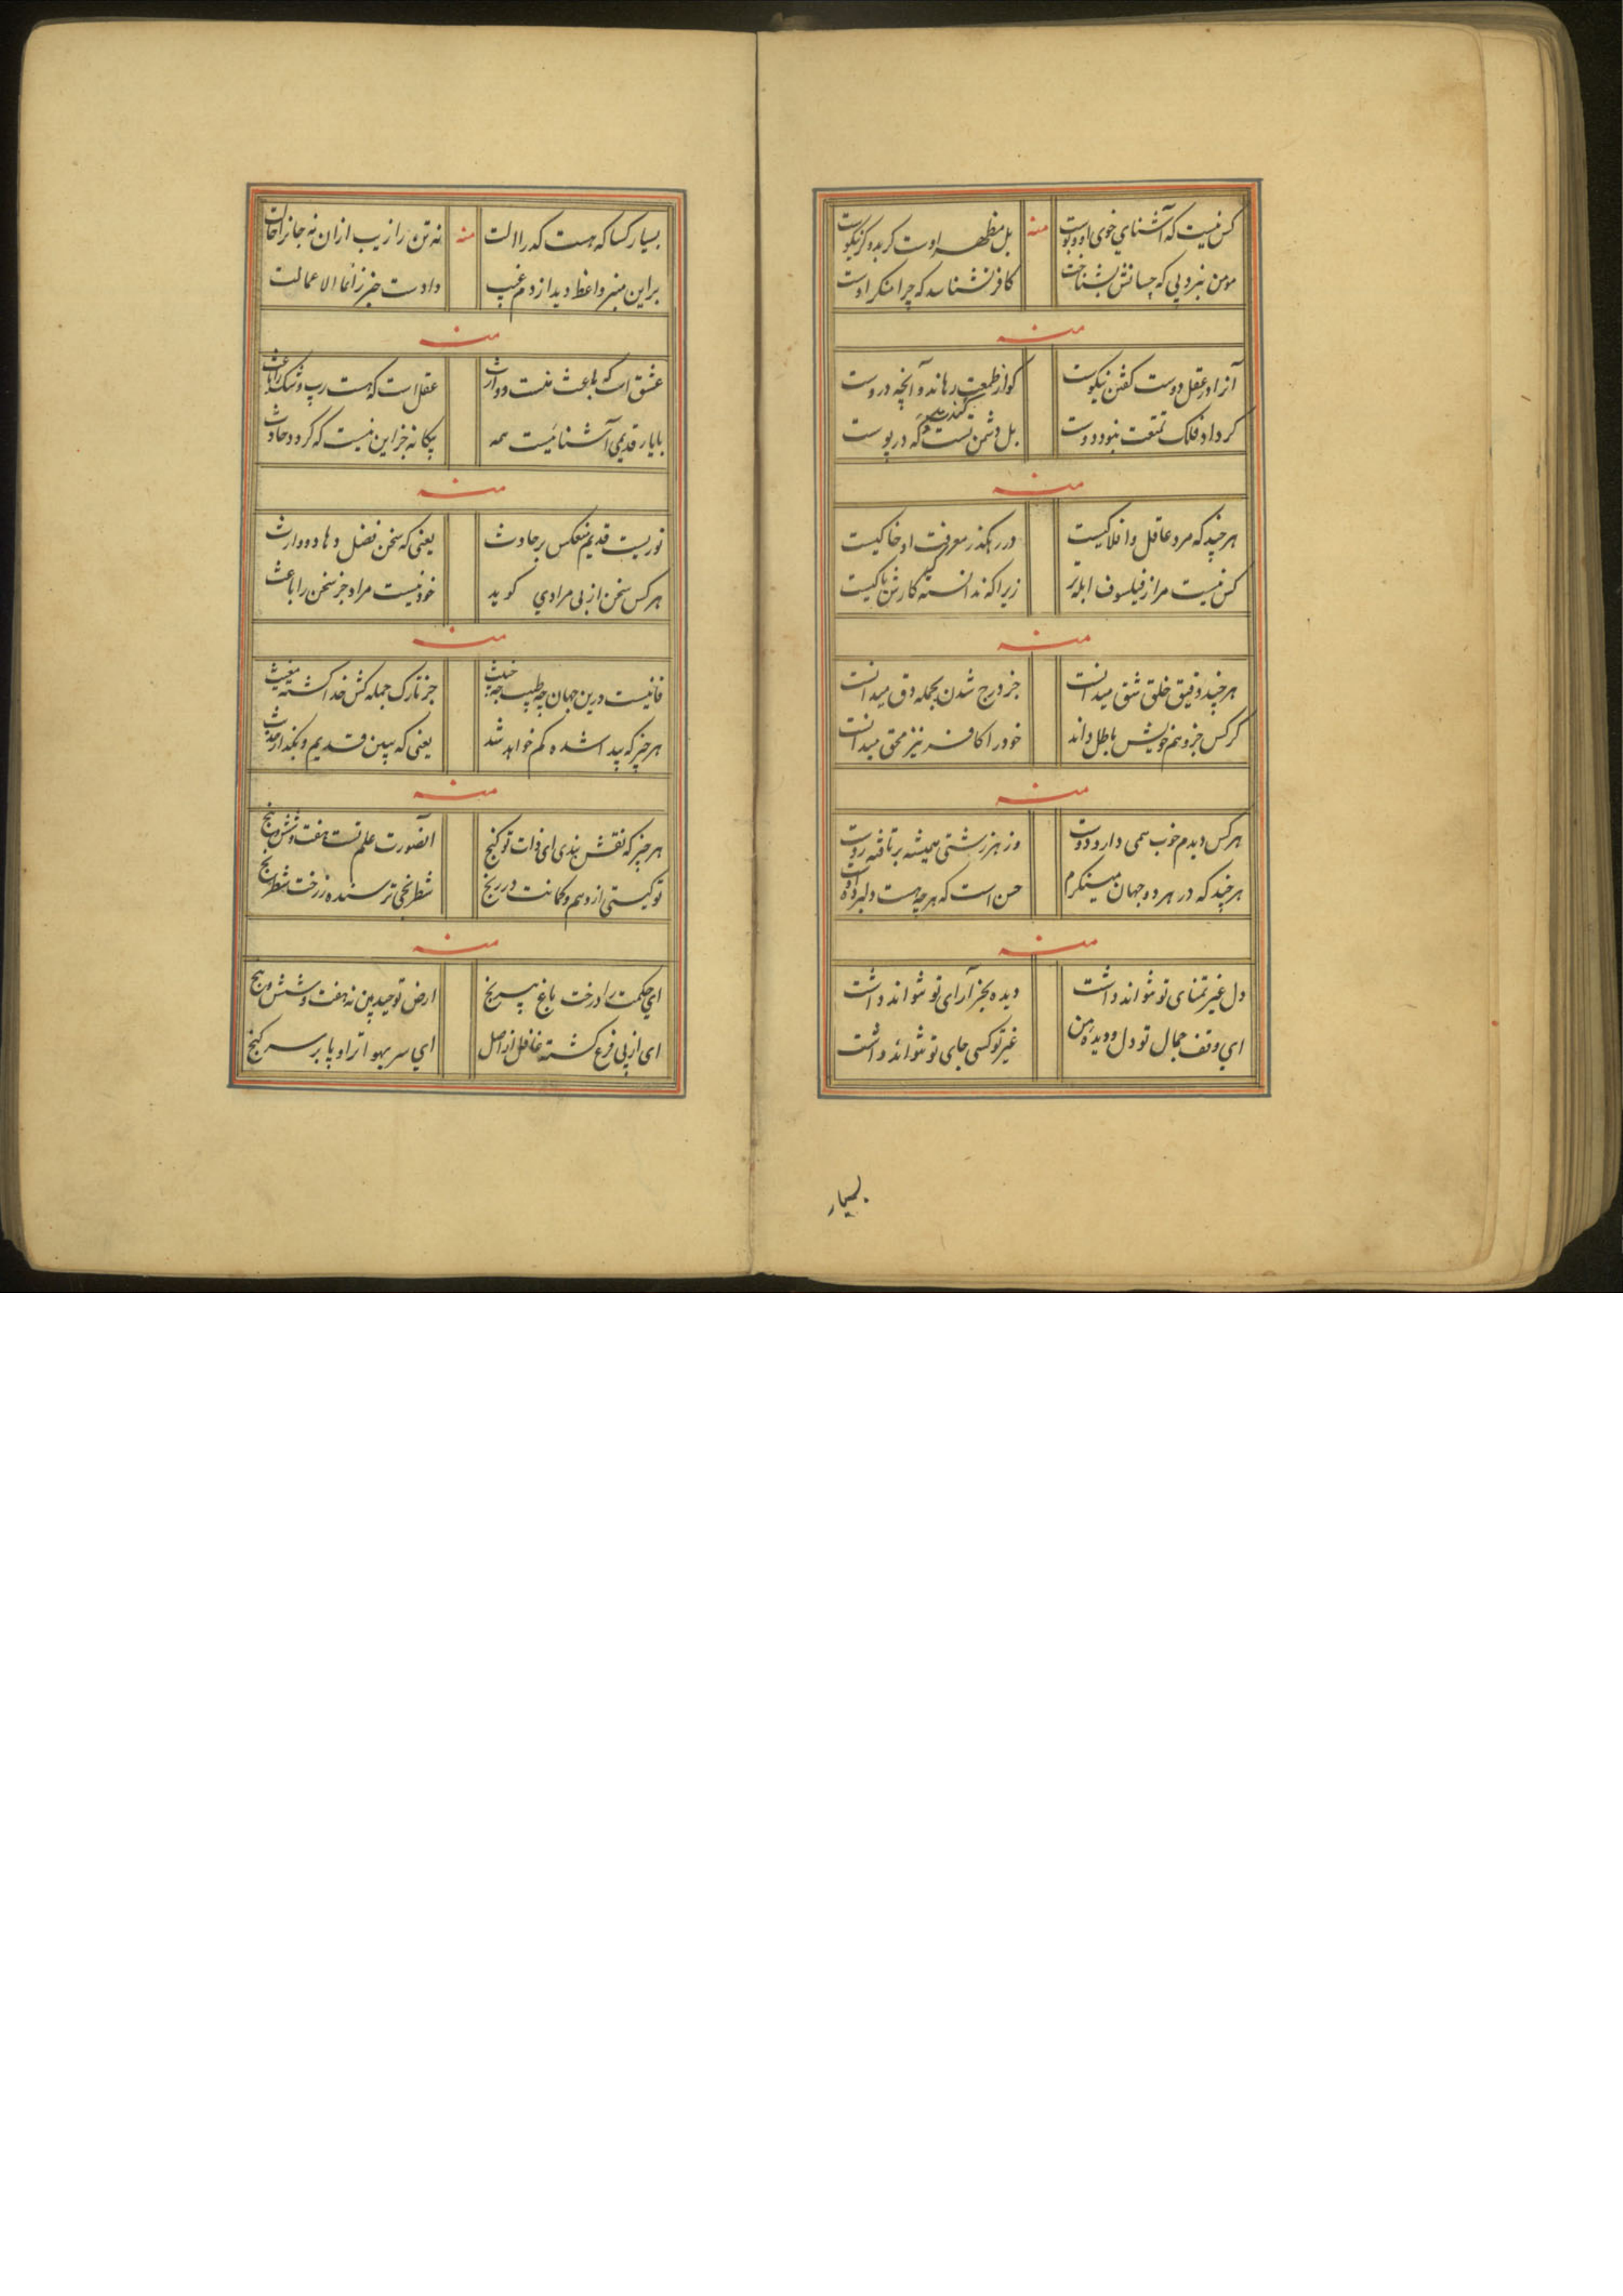 کس نیست که آشنای خوی او و بوست
منه
بل مظهر اوست کر بد و کر نیکوست
مومن نبرد پی که چسانش بشناخت
کافر نشناسد که چرا منکر اوست
منه
آنرا در عقل دوست کفتن نیکوست
کو از طمعت رهاند و آنچه دروست
کر داد فلک تمتعت نبود دوست
بل دشمن تست که در پوست
منه
هر چند که مرد عاقل و افلاکیست
در رهکذر معرفت او خاکیست
کس نیست مر از فیلسوف ابله تر
زیرا که ندانسته که کارش با کیست
منه
هر چند دقیق خلق شق میدانست
جز درج شدن بجمله دق میدانست
کر کس جز وهم خویش باطل داند
خود را کافر نیز محق میدانست
منه
هر کس دیدم خوب سمی دارد دوست
وز هر زشتی همیشه برتافته روست
هر چند که در هر دو جهان مینکرم
حسن است که هر چه هست دلبرده اوست
منه
دل غیر تمنای تو نتواند داشت
دیده بجز آرای تو نتواند داشت
ای وقف جمال تو دل و دیده من
غیر تو کسی جای تو نتواند داشت
بسیار
بسیار کسا که هست که را الت
منه
نه تن را زیب ازان نه جانرا حالت
بر این منبر واعظ دید از دم غیب
دادست خبر ز انما الاعمالت
منه
عشق است که باعث منست و وارث
عقل است که هست ریب و شک را باعث
با یار قدیمی آشنائیست همه
بیکانه جز این نیست که کردد حادث
منه
نوریست قدیم منعکس بر حادث
یعنی که سخن فضل دها دو وارث
هر کس سخن از بی مرادی کوید
خود نیست مراد جز سخن را باعث
منه
فانیست درین جهان چه طیب چه خبیث
جز تارک جمله کش خدا کشته مغیث
هر چیز که پیدا شده کم خواهد شد
یعنی که ببین قدیم و بکذار حدیث
منه
هر چیز که نقش بندی ای ذات تو کنج
آنصورت علم تست هفت و شش و پنج
تو کیستی از وهم و کمانت در رنج
شطرنجی ترسنده ز رخت شطرنج
منه
ای حکمت را درخت باغ
ارض توحید بین نه هفت و شش و پنج
ای از پی فرع کشته غافل از اصل
ای سر بهوا ترا و پا بر سر کنج